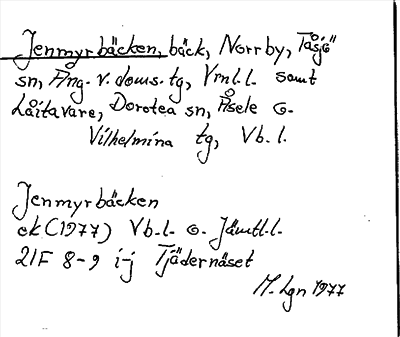 Jenmyrbäcken, bäck, Norrby, Tåsjö
sn, Ång. v. doms. tg, Vrnl.l. samt
Låitavare, Dorotea sn, Åsele o.
Vilhelmina tg, Vb.l.
Jenmyrbäcken
ek (1977) Vb.l. o. Jämtl.l.
21F 8-9 i-j Tjädernäset
M. Lgn 1977